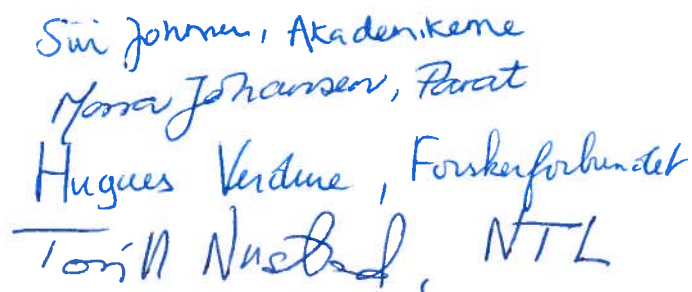 Siri Johnsen, Akademikerne
Mona Johansen, Parat
Hugues Verdure, Forskerforbundet
Torill Nustad, NTL